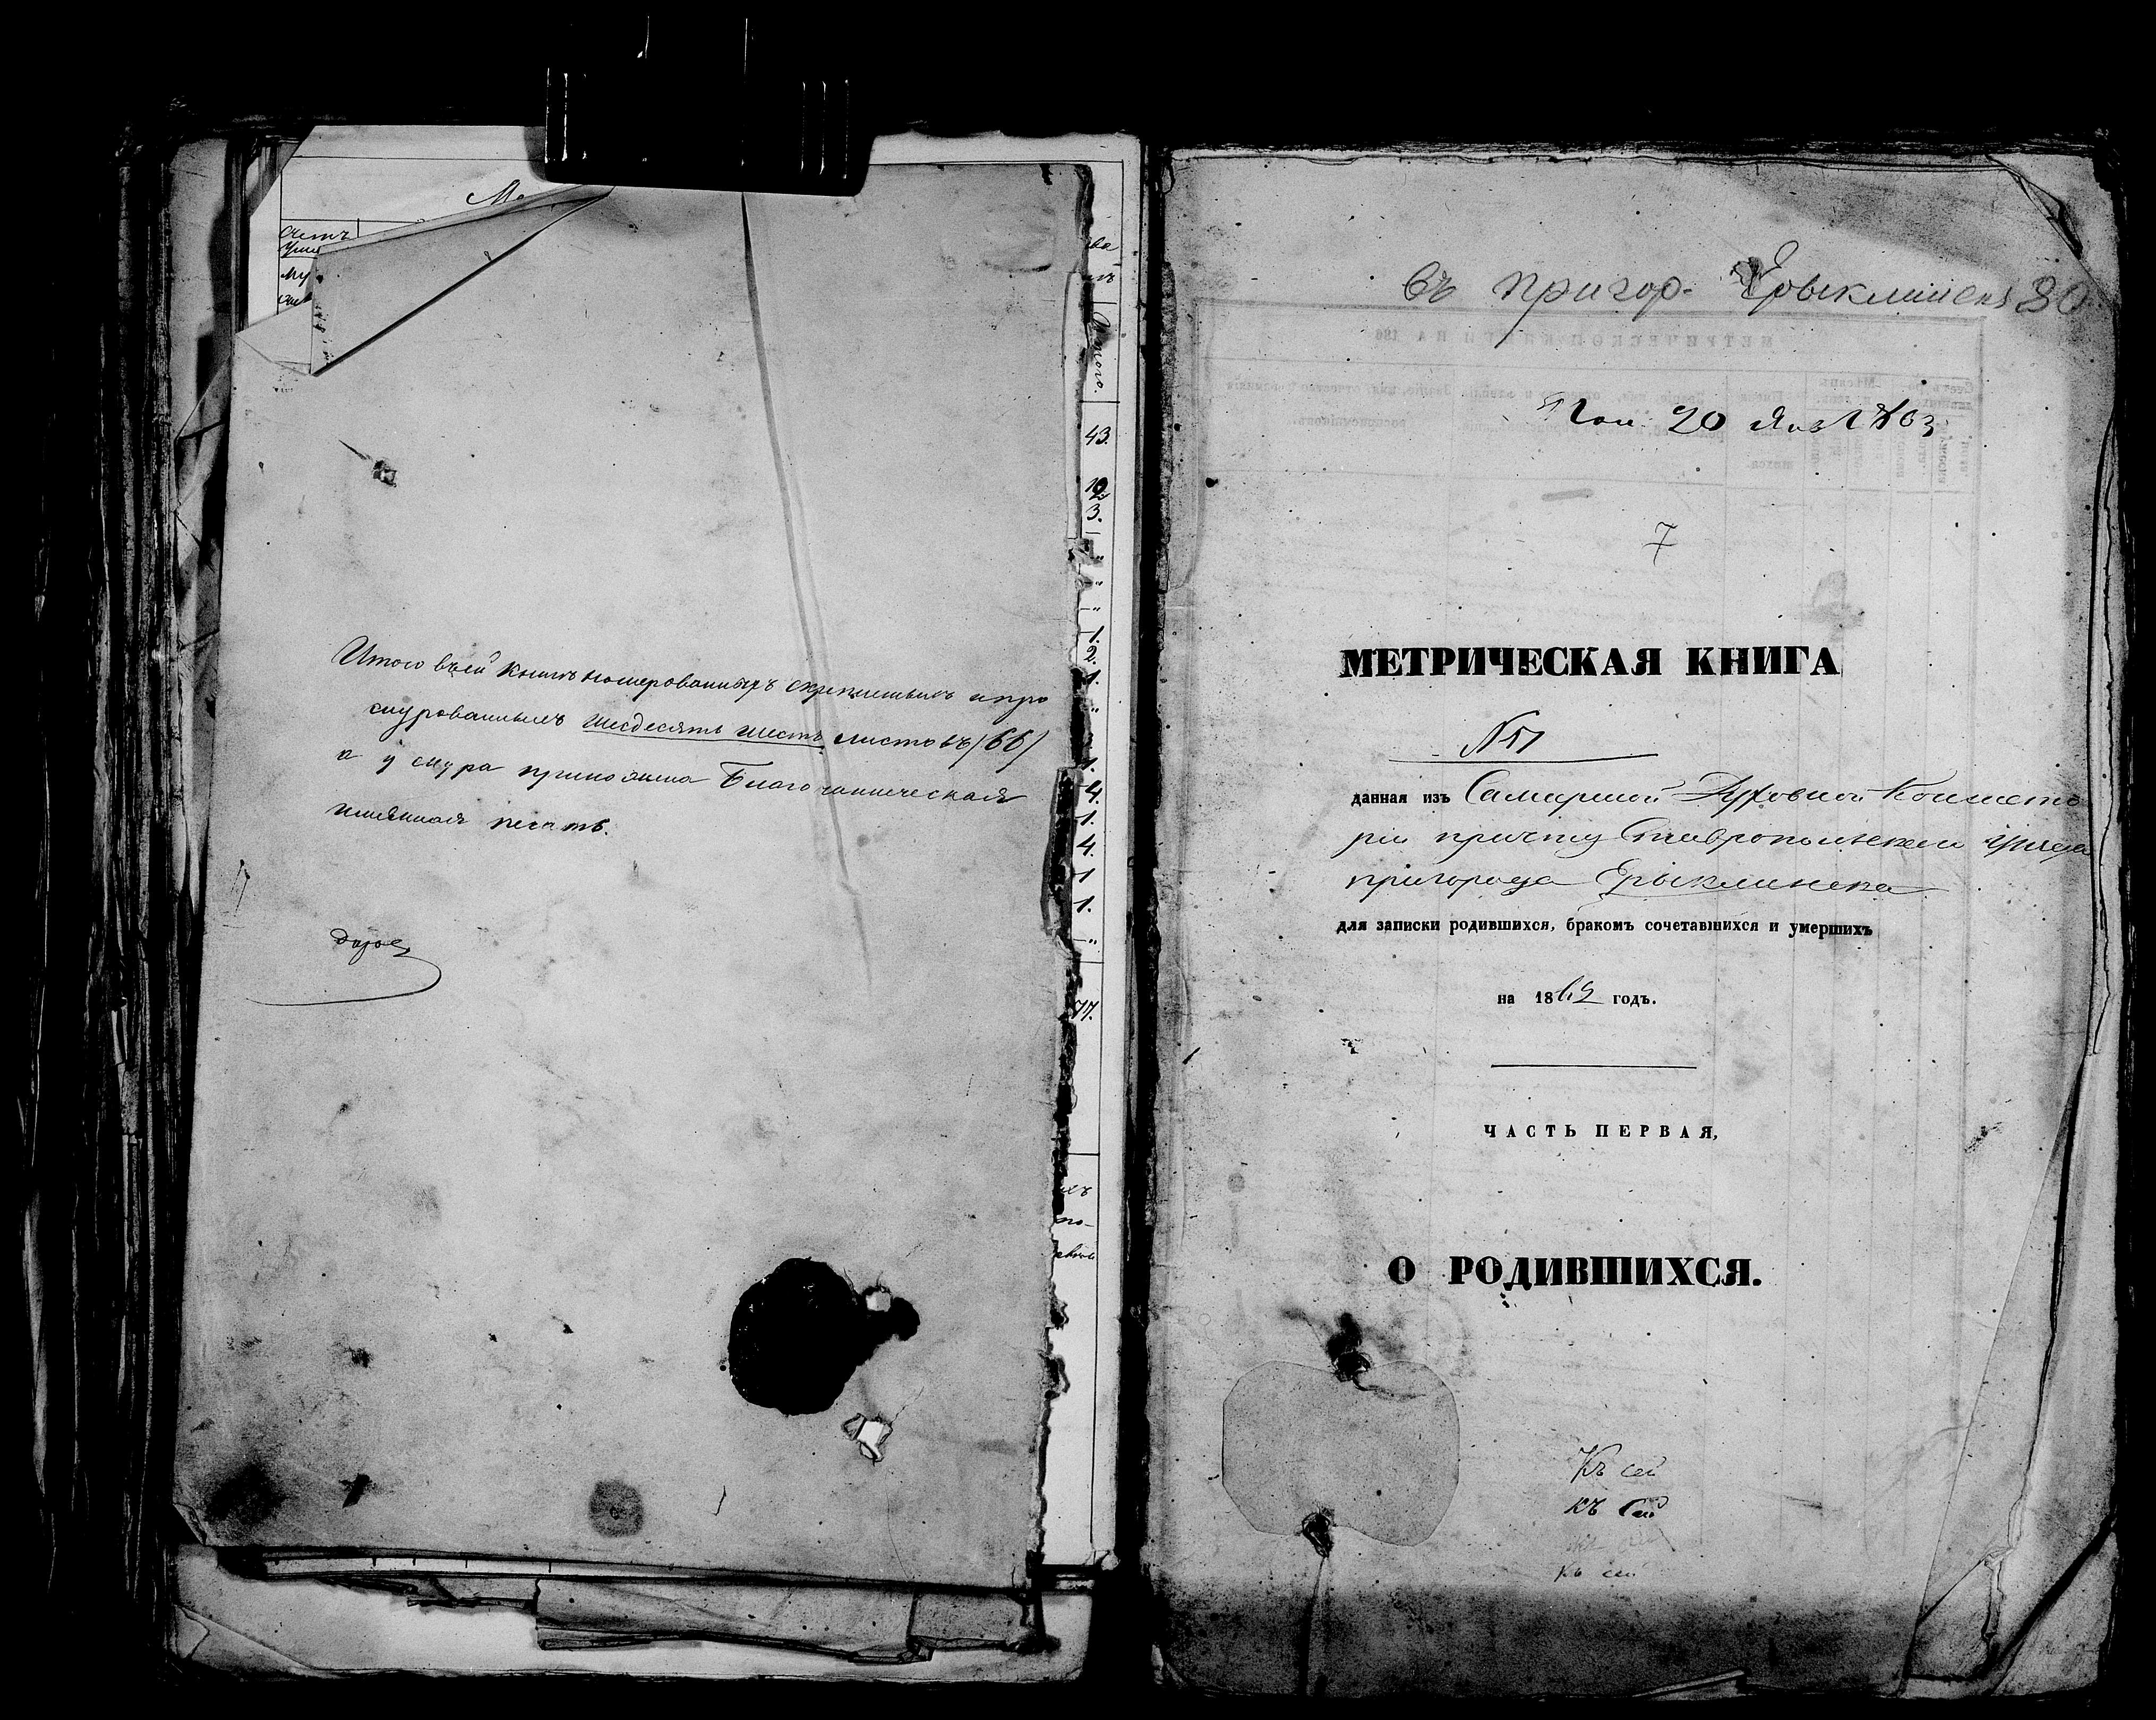 Итого въ сей книгѣ номерованныхъ скрепленныхъ и про
шнурованныхъ шесдесять шесть листовъ (66)
а у снура приложена Благочинническая
имянная печать.
Счетъ
43.
3.
1.
2.
1.
1.
4.
1.
4.
1
1.
77.
Въ пригор. Ерыклинскъ 80
Пол. 20 Янв 1863
7
МЕТРИЧЕСКАЯ КНИГА
данная изъ Самарской Духовной Консисто
ріи причту Ставропольскаго уѣзда
пригорода Ерыклинска
для записки родившихся, бракомъ сочетавшихся и умершихъ
на 1862 годъ.
ЧАСТЬ ПЕРВАЯ,
О РОДИВШИХСЯ.
Къ сей
къ Сей
къ сей